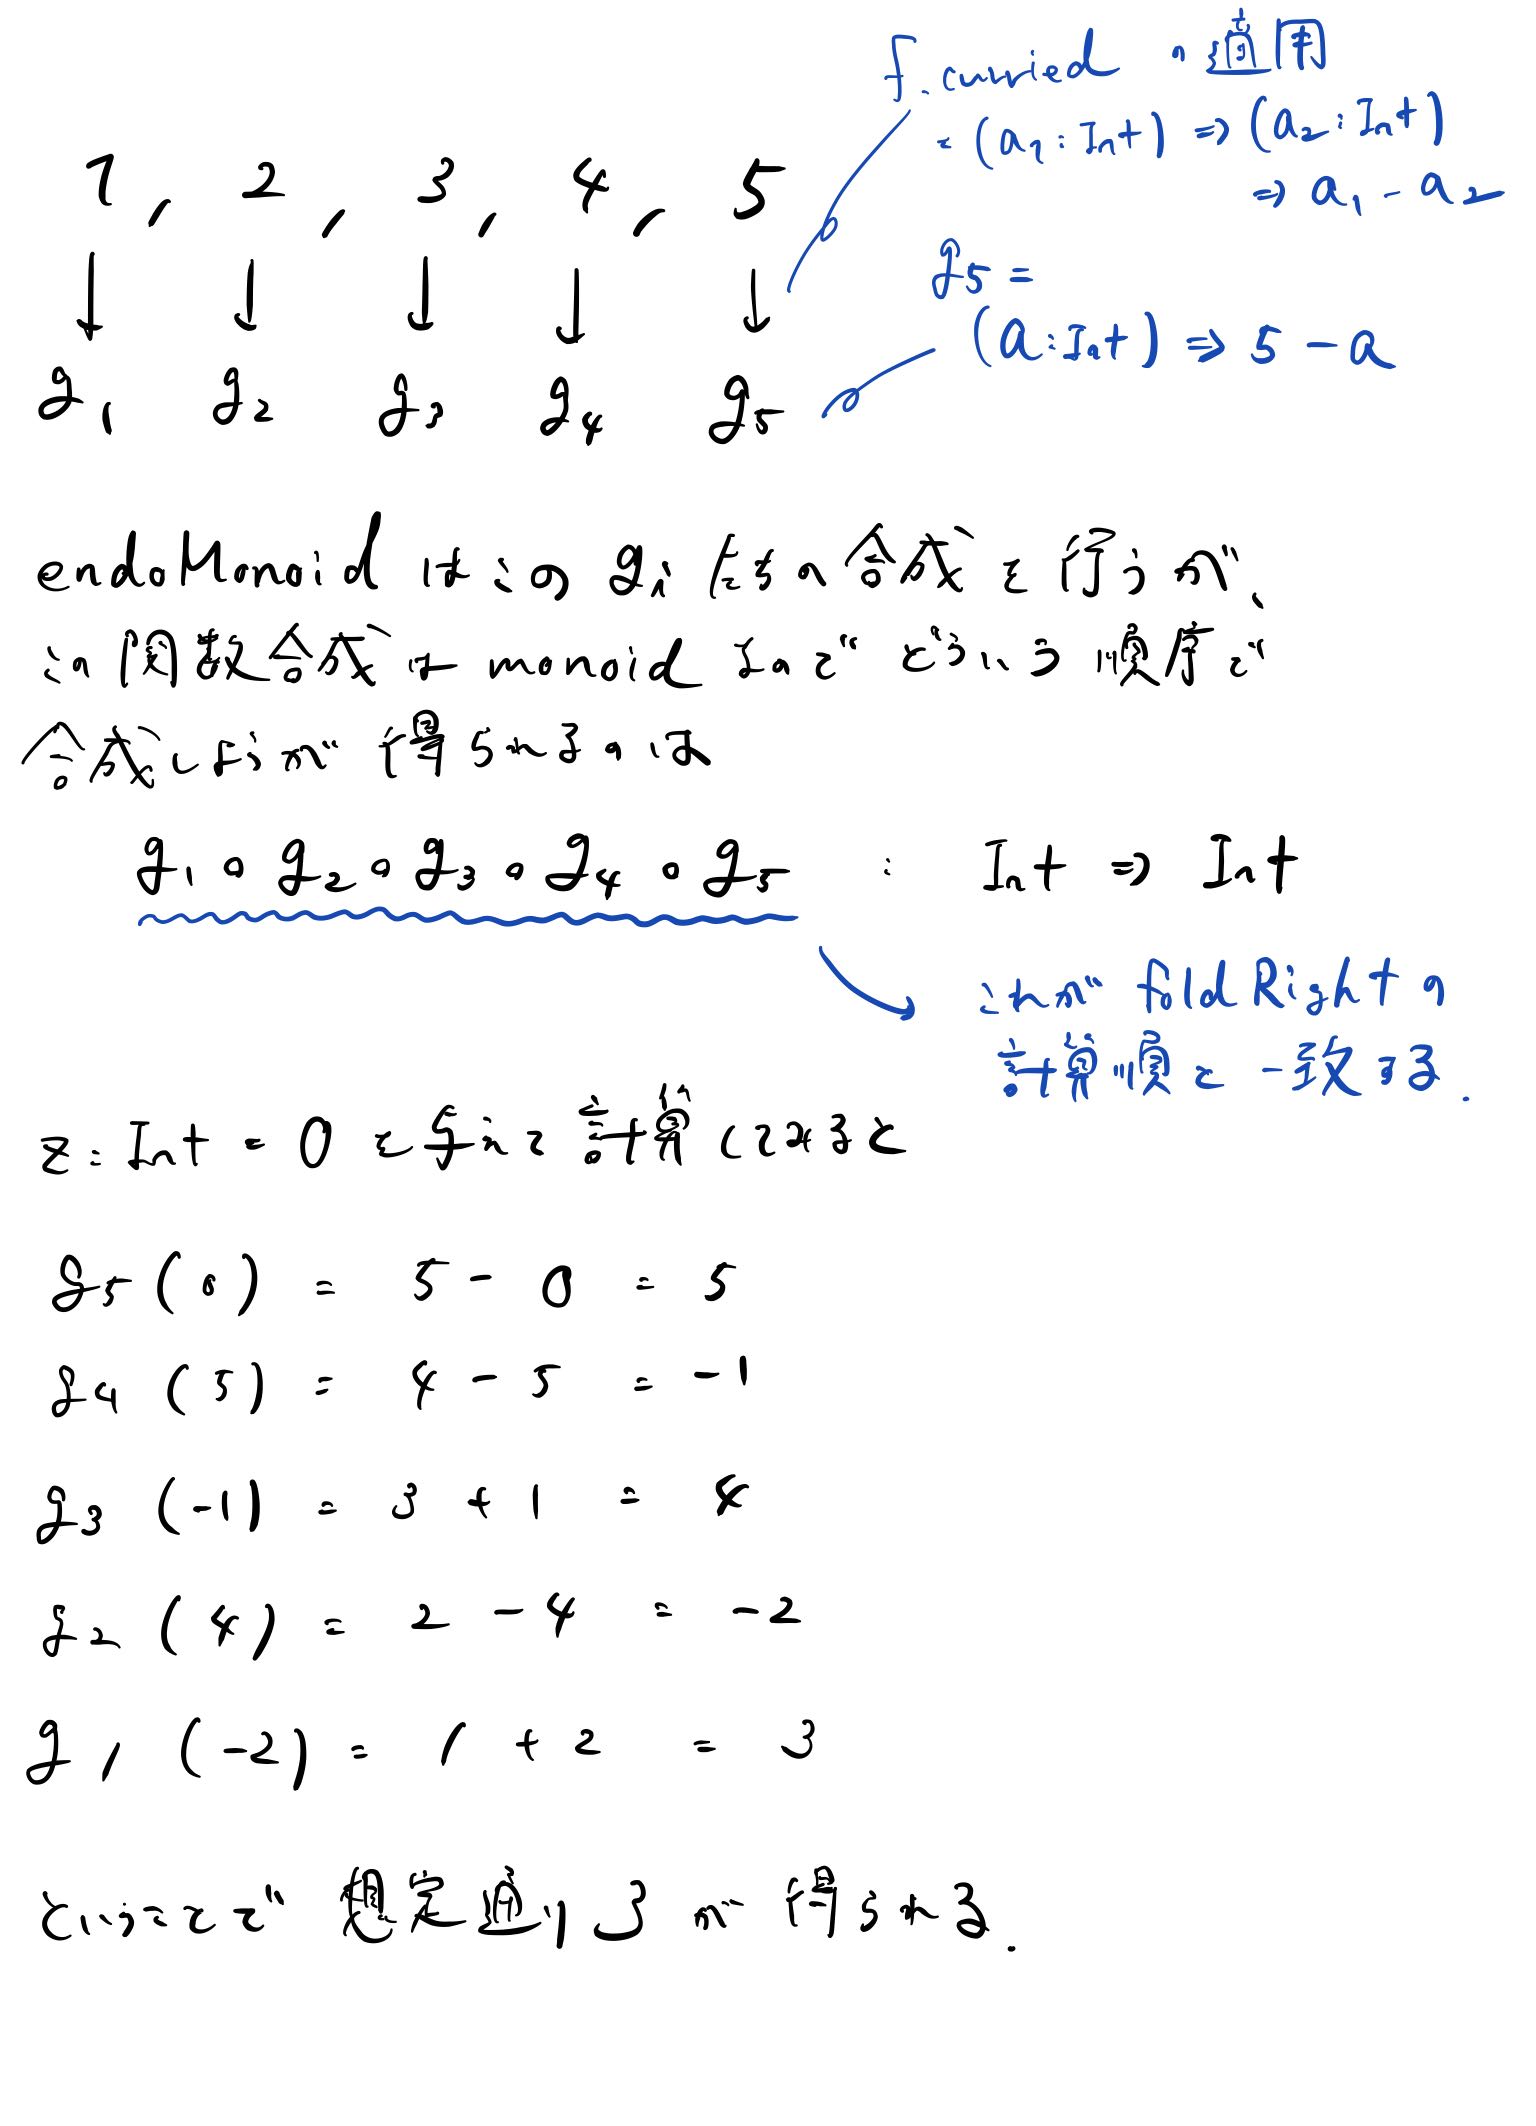 f.curried の適用
= (a₁: Int) ⇒ (a₂: Int)
⇒ a₁ - a₂
1, 2, 3, 4, 5
↓ ↓ ↓ ↓ ↓
g₅ =
(a: Int) ⇒ 5 - a
g₁ g₂ g₃ g₄ g₅
endoMonoid はこの gᵢ たちの合成を行うが、
この関数合成は monoid なので どういう順序で
合成しようが得られるのは
g₁ ∘ g₂ ∘ g₃ ∘ g₄ ∘ g₅ : Int ⇒ Int
これが foldRight の
計算順と一致する.
z: Int = 0 を与えて計算してみると
g₅ (0) = 5 - 0 = 5
g₄ (5) = 4 - 5 = -1
g₃ (-1) = 3 + 1 = 4
g₂ (4) = 2 - 4 = -2
g₁ (-2) = 1 + 2 = 3
ということで 想定通り 3 が得られる.